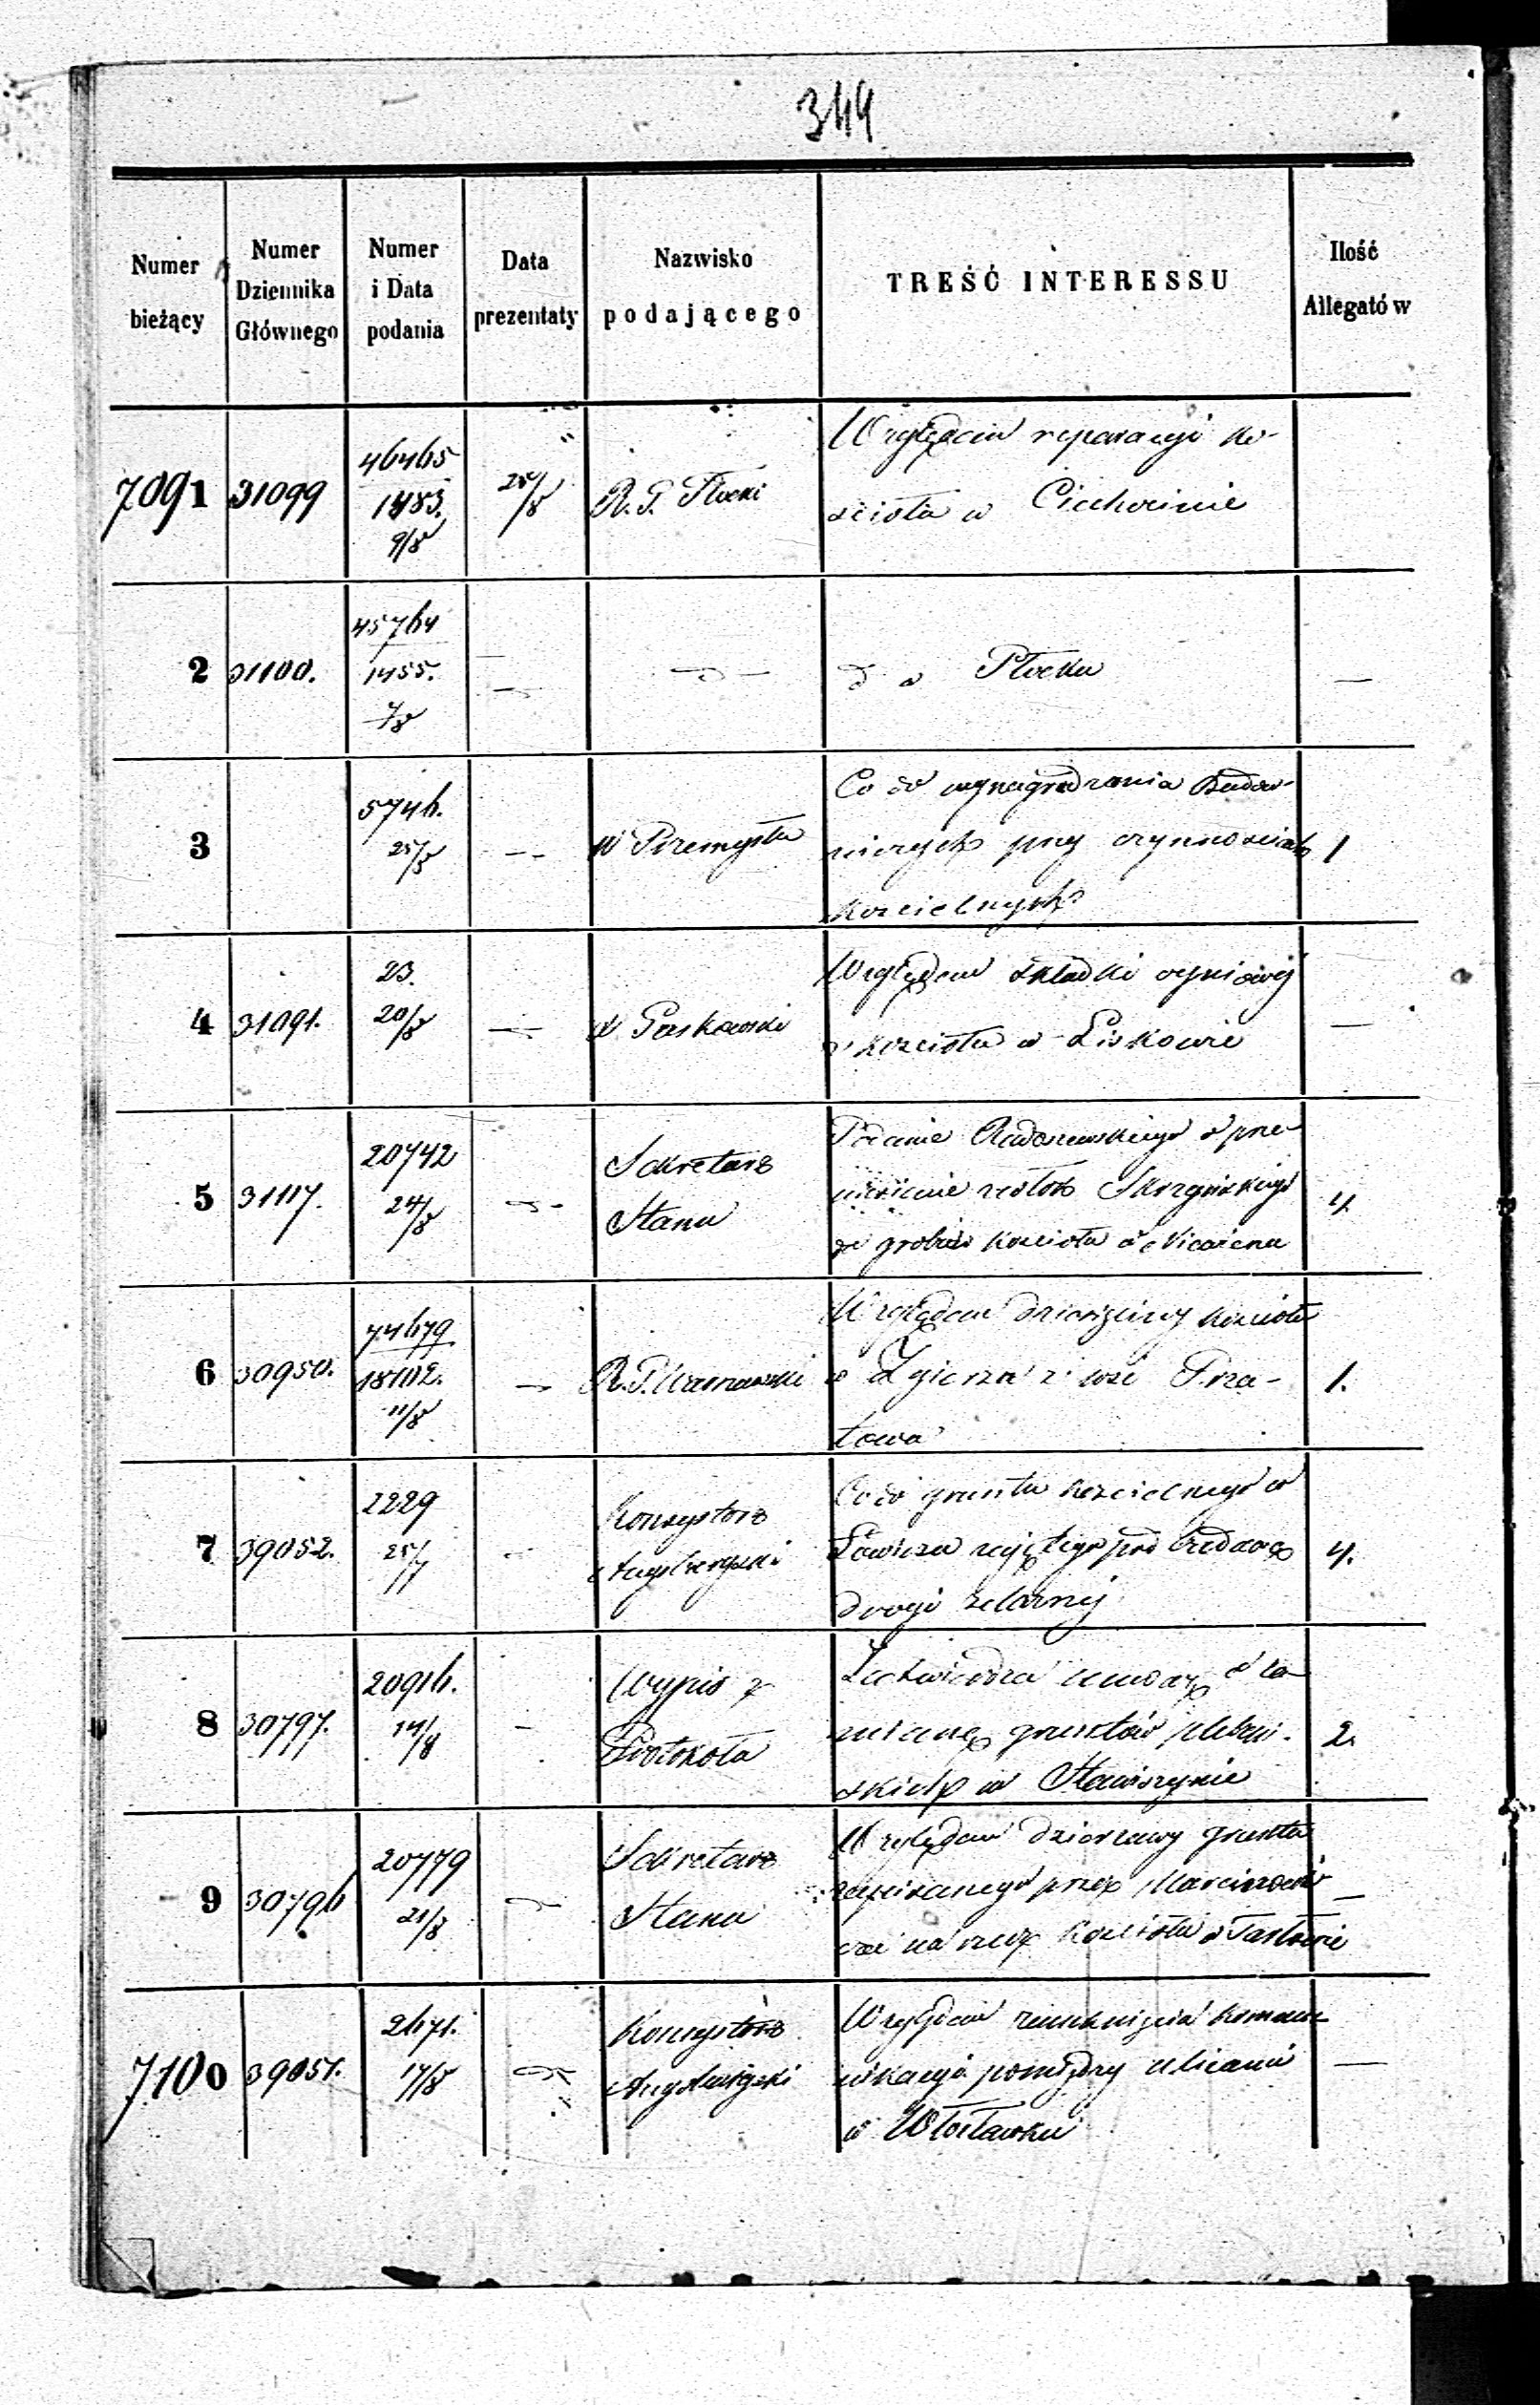 349
Numer bieżący
Numer Dziennika Głównego
Numer i Data podania
Data prezentaty
Nazwisko podającego
TREŚĆ INTERESSU
Ilość Allegatów
7091 31099
46465
1483.
9/8
25/8
R. G. Płocki
Względem reparacyi ko-
ścioła w Ciechocinie
2 31100.
45764
1455.
7/8
d w Płocku
—
3
5746.
25/8
W Przemysłu
Co do wynagrodzenia Budow-
niczych przy czynnościach
kościelnych
1
4 31091.
23.
20/8
Paskowski
Względem składki ogniowej
kościoła w Liskowie
—
5 31117.
20742
24/8
Sekretarz
Stanu
Podanie Radoszewskiego o prze
niesienie zwłok Skrzyńskiego
do grobów kościoła
4
6 30950.
74679
18102.
11/8
R. G. Warszawski
Względem dziesięciny kościoła
w Zgierzu z wsi
1.
7 39052.
2229
25/7
Konsystorz
Co do gruntu kościelnego w
Łowiczu zajętego pod budowę
drogi żelaznej
4.
8 30797.
20916.
14/8
Wypis z
Protokołu
Zatwierdza umowę o za
mianę gruntów pleban-
skich w Stawiszynie
2.
9 30796
20779
21/8
Sekretarz
Stanu
Względem dzierżawy gruntu
zapisanego przez
na rzecz kościoła w
—
7100 39051.
2671.
17/8
Konsystorz
Augustowski
Względem zamknięcia komu
nikacyi pomiędzy ulicami
w Włocławku
—